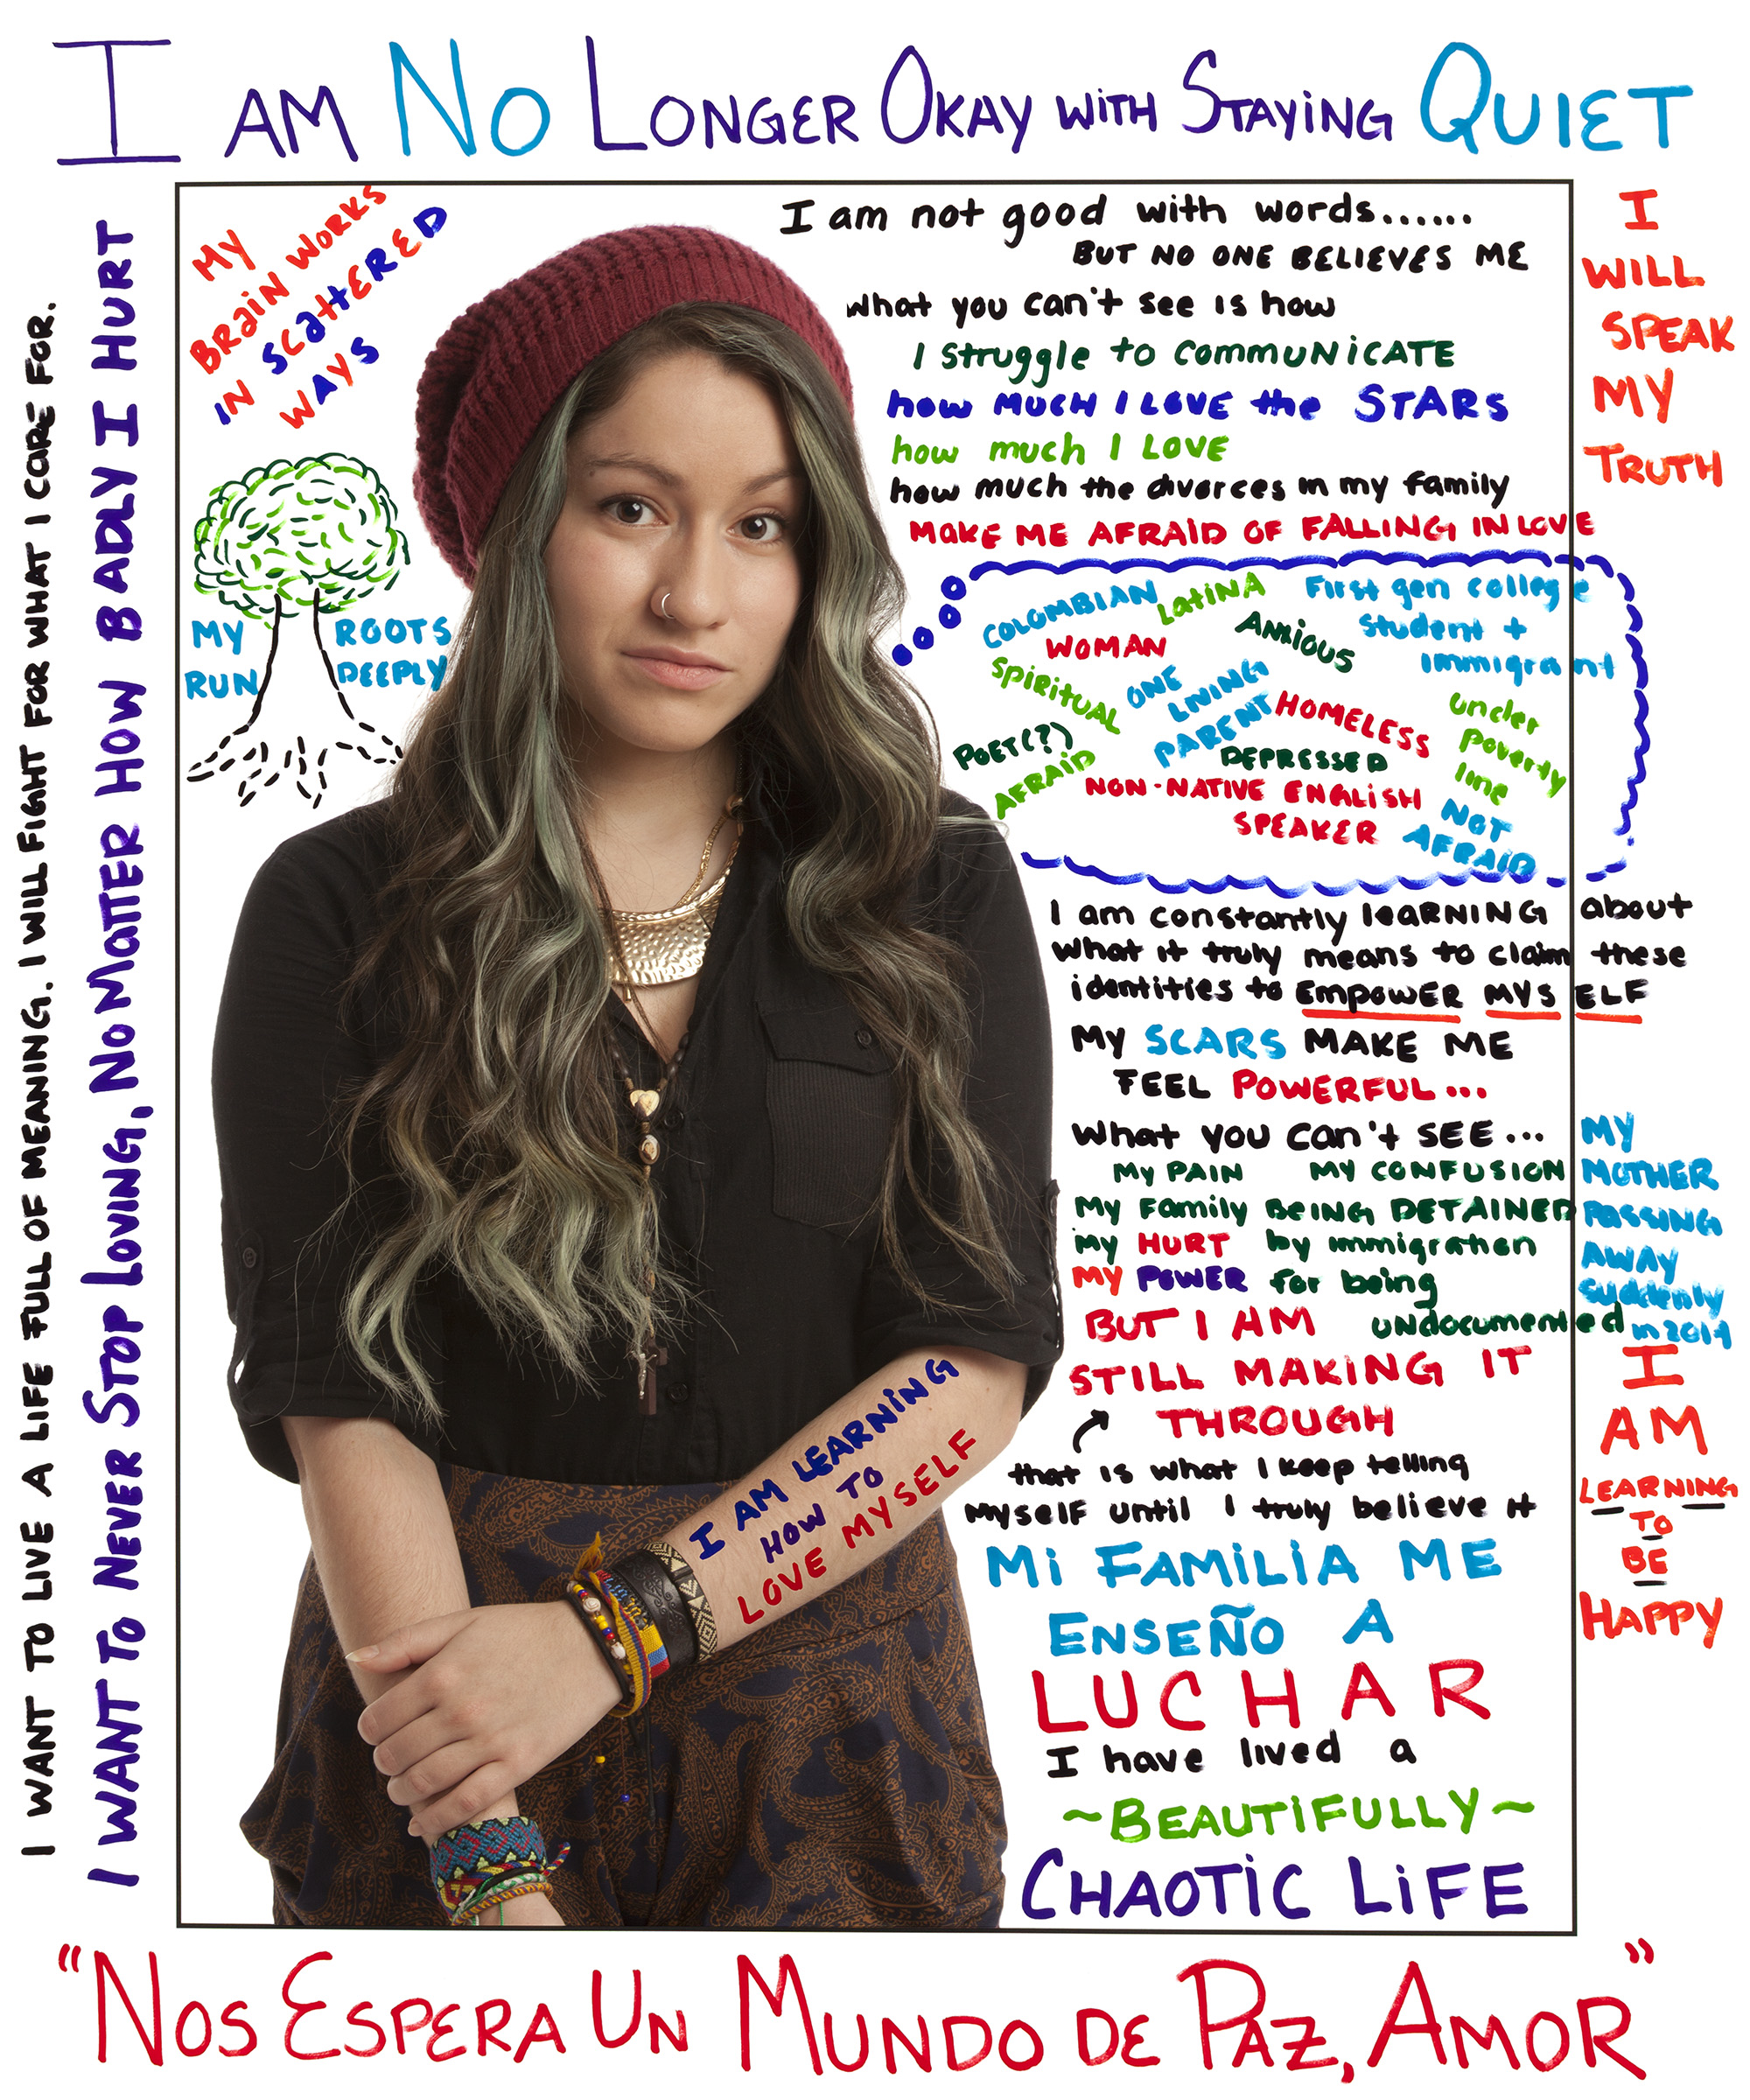 I AM NO LONGER OKAY WITH STAYING QUIET
I WANT TO LIVE A LIFE FULL OF MEANING. I WILL FIGHT FOR WHAT I CARE FOR.
I WANT TO NEVER STOP LOVING, NO MATTER HOW BADLY I HURT
MY
BRAIN WORKS
IN SCATTERED
WAYS
MY ROOTS
RUN DEEPLY
I am not good with words......
BUT NO ONE BELIEVES ME
what you can't see is how
I struggle to COMMUNICATE
how MUCH I LOVE the STARS
how much I LOVE
how much the divorces in my family
MAKE ME AFRAID OF FALLING IN LOVE
COLOMBIAN
LATINA
First gen college
student +
immigrant
WOMAN
ANXIOUS
SPIRITUAL
ONE
LIVING
PARENT
HOMELESS
under
poverty
line
POET(?)
AFRAID
DEPRESSED
NON-NATIVE ENGLISH
SPEAKER
NOT
AFRAID
I am constantly learning about
what it truly means to claim these
identities to EMPOWER MYSELF
MY SCARS MAKE ME
FEEL POWERFUL...
what you can't SEE...
MY PAIN MY CONFUSION
My Family BEING DETAINED
my HURT by immigration
MY POWER for being
undocumented
BUT I AM
STILL MAKING IT
THROUGH
that is what I keep telling
myself until I truly believe it
MI FAMILIA ME
ENSEÑO A
LUCHAR
I have lived a
~BEAUTIFULLY~
CHAOTIC LIFE
I AM LEARNING
HOW TO
LOVE MYSELF
I
WILL
SPEAK
MY
TRUTH
MY
MOTHER
PASSING
AWAY
suddenly
in 2014
I
AM
LEARNING
TO
BE
HAPPY
"NOS ESPERA UN MUNDO DE PAZ, AMOR"